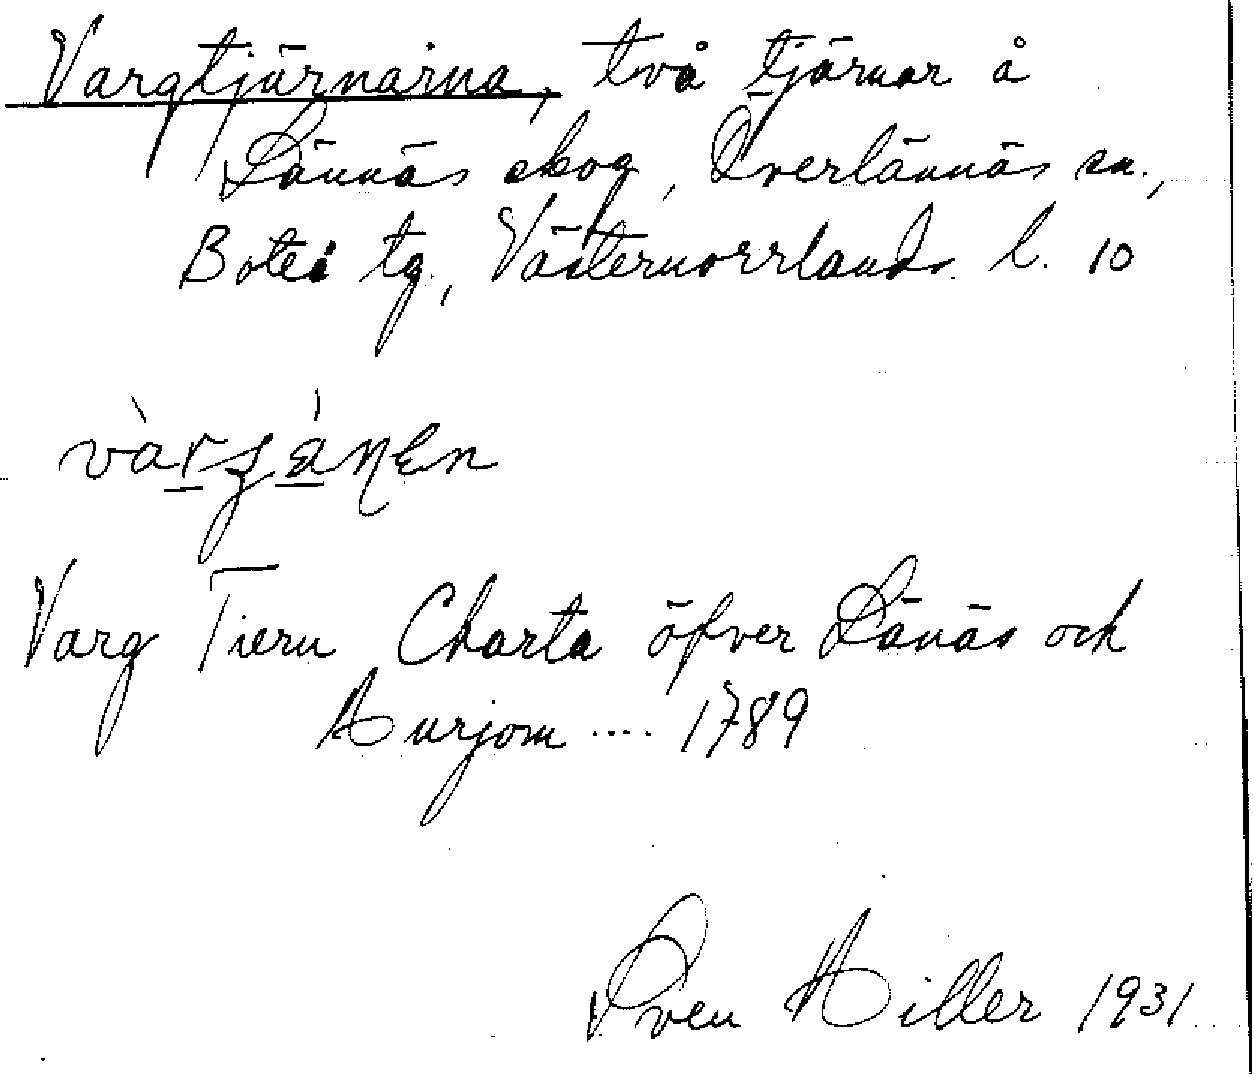 Vargtjärnarna, två tjärnar å
Lännäs skog, Överlännäs sn.,
Boteå tg., Västernorrlands l. 10
Varg Tiern Charta öfver Länäs och
Hurjom .... 1789
Sven Hiller 1931